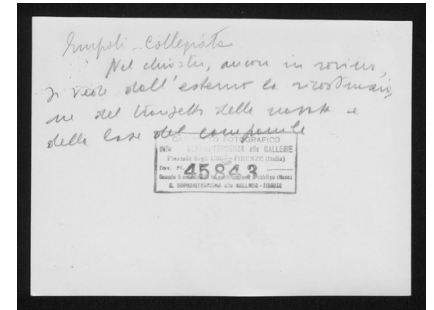 Empoli - Collegiata
Nel chiostro, ancora in rovina,
si vede dall'esterno la ricostruzio
ne del della e
della base del campanile
FOTOGRAFICO
della alle GALLERIE
Piazzale degli Uffizi - FIRENZE (Italia)
45843
IL SOPRINTENDENTE alle GALLERIE - FIRENZE